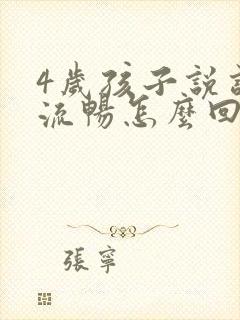 4歲孩子說
流暢怎麼回
張寧